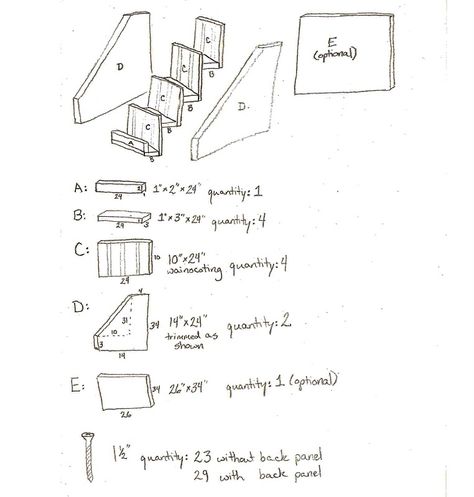 D
C
B
C
B
C
B
C
A
B
D.
E
(optional)
A: 24 2 1 1"x2"x24" quantity: 1
B: 24 3 1"x3"x24" quantity: 4
C: 24 10 10"x24"
wainscoting quantity: 4
D: 4 31 10 3 14 34 14"x24" quantity: 2
trimmed as
shown
E: 26 34 26"x34" quantity: 1 (optional)
1½" quantity: 23 without back panel
29 with back panel